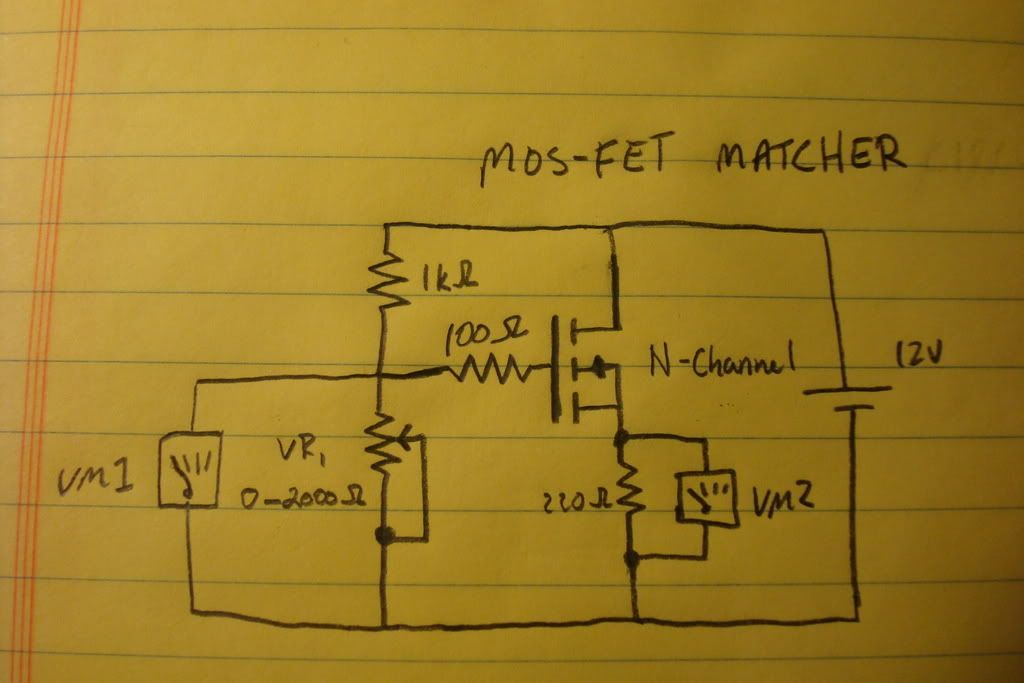 MOS-FET MATCHER
1kΩ
100Ω
N-Channel
12V
VM1
VR1
0-2000Ω
220Ω
VM2